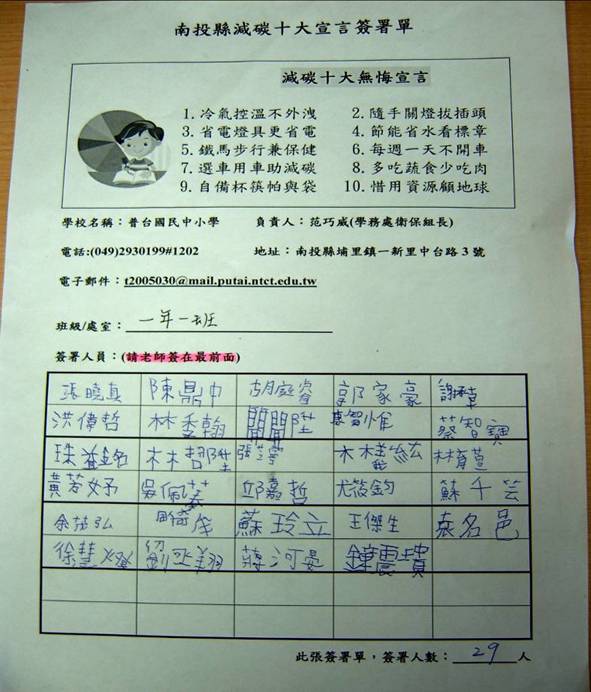 南投縣減碳十大宣言簽署單
減碳十大無悔宣言
1. 冷氣控溫不外洩 2. 隨手關燈拔插頭
3. 省電燈具更省電 4. 節能省水看標章
5. 鐵馬步行兼保健 6. 每週一天不開車
7. 選車用車助減碳 8. 多吃蔬食少吃肉
9. 自備杯筷帕與袋 10. 惜用資源顧地球
學校名稱：普台國民中小學 負責人：范巧威(學務處衛保組長)
電話:(049)2930199#1202 地址：南投縣埔里鎮一新里中台路3號
電子郵件：t2005030@mail.putai.ntct.edu.tw
班級/處室：一年一班
簽署人員：(請老師簽在最前面)
張曉真 陳鼎中 胡庭睿 郭家豪
洪偉哲 林季翰 蔡智寶
林哲陞 林育萱
黃芳妤 吳佩蓁 邱嘉哲 尤筱鈞 蘇千芸
余茄弘 蘇玲立 王傑生 袁名邑
徐慧 劉丞翔 蔣河晏 鐘震
此張簽署單，簽署人數：29人